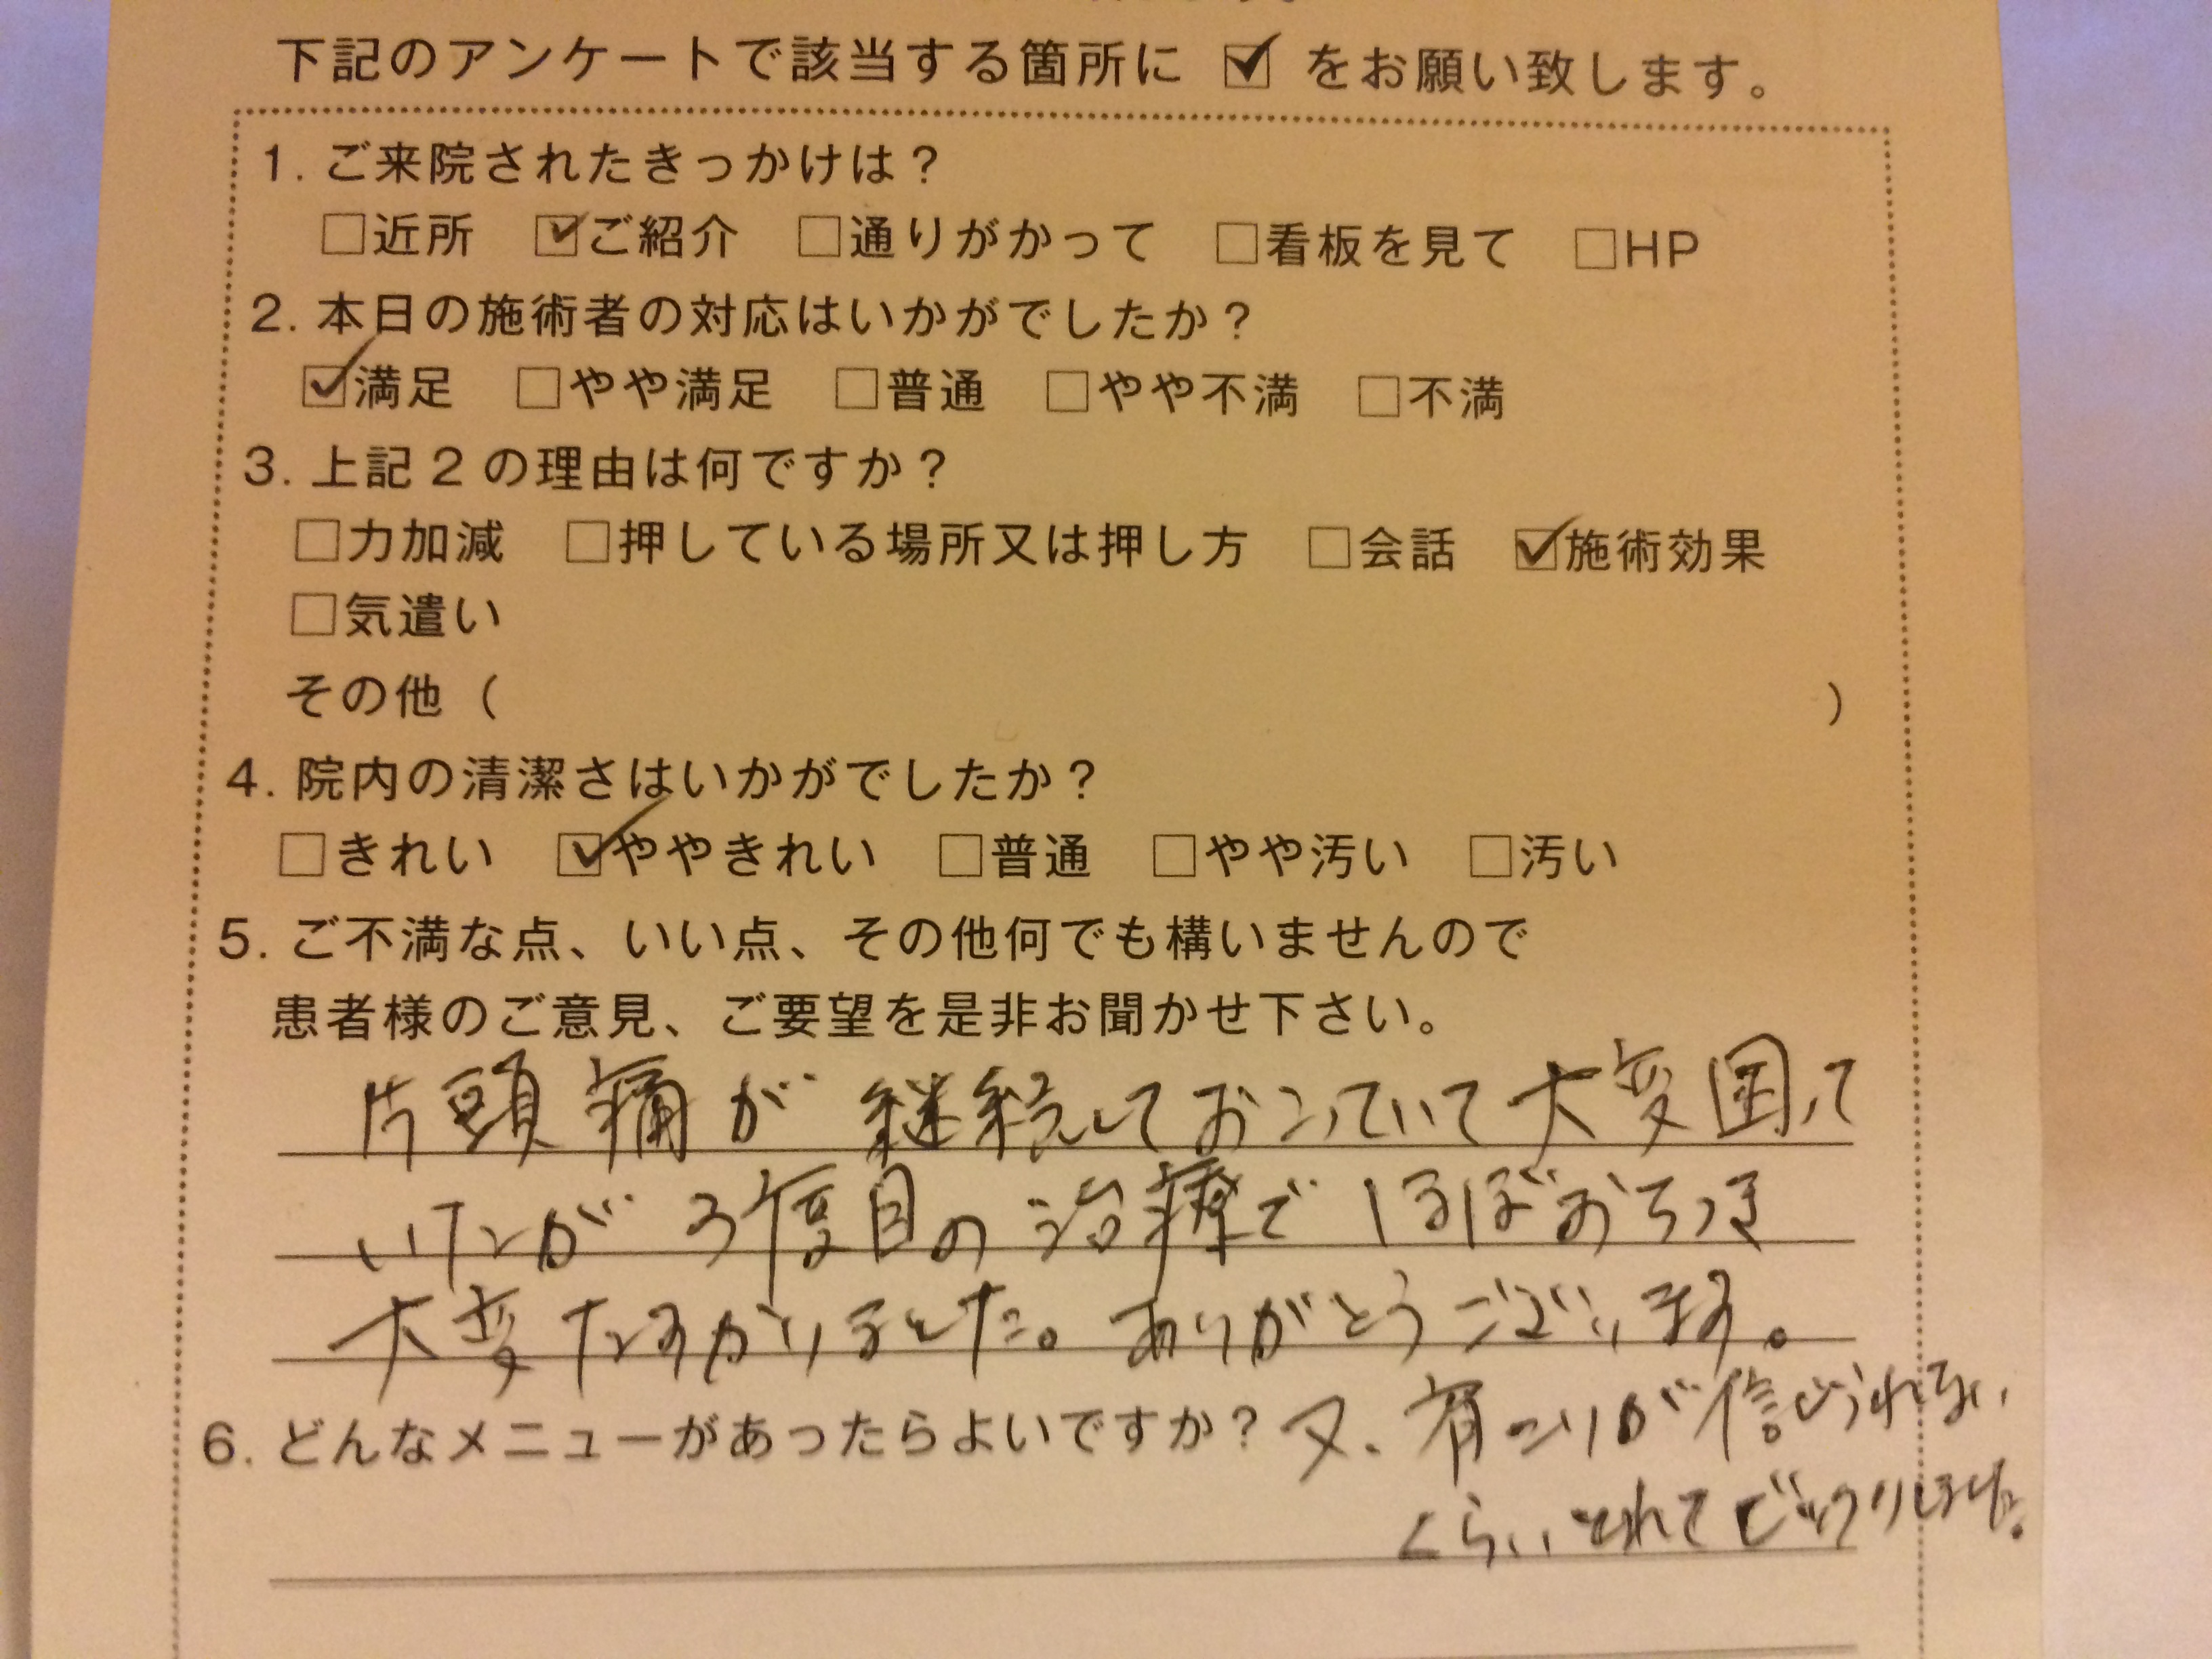 下記のアンケートで該当する箇所に ☑ をお願い致します。
1. ご来院されたきっかけは？
□近所 ☑ご紹介 □通りがかって □看板を見て □HP
2. 本日の施術者の対応はいかがでしたか？
☑満足 □やや満足 □普通 □やや不満 □不満
3. 上記2の理由は何ですか？
□力加減 □押している場所又は押し方 □会話 ☑施術効果
□気遣い
その他（ ）
4. 院内の清潔さはいかがでしたか？
□きれい ☑ややきれい □普通 □やや汚い □汚い
5. ご不満な点、いい点、その他何でも構いませんので
患者様のご意見、ご要望を是非お聞かせ下さい。
片頭痛が継続しておこっていて大変困って
いたが3度目の治療でほぼおちつき
大変たすかりました。ありがとうございます。
6. どんなメニューがあったらよいですか？
又、肩こりが信じられない
くらいとれてビックリしました。